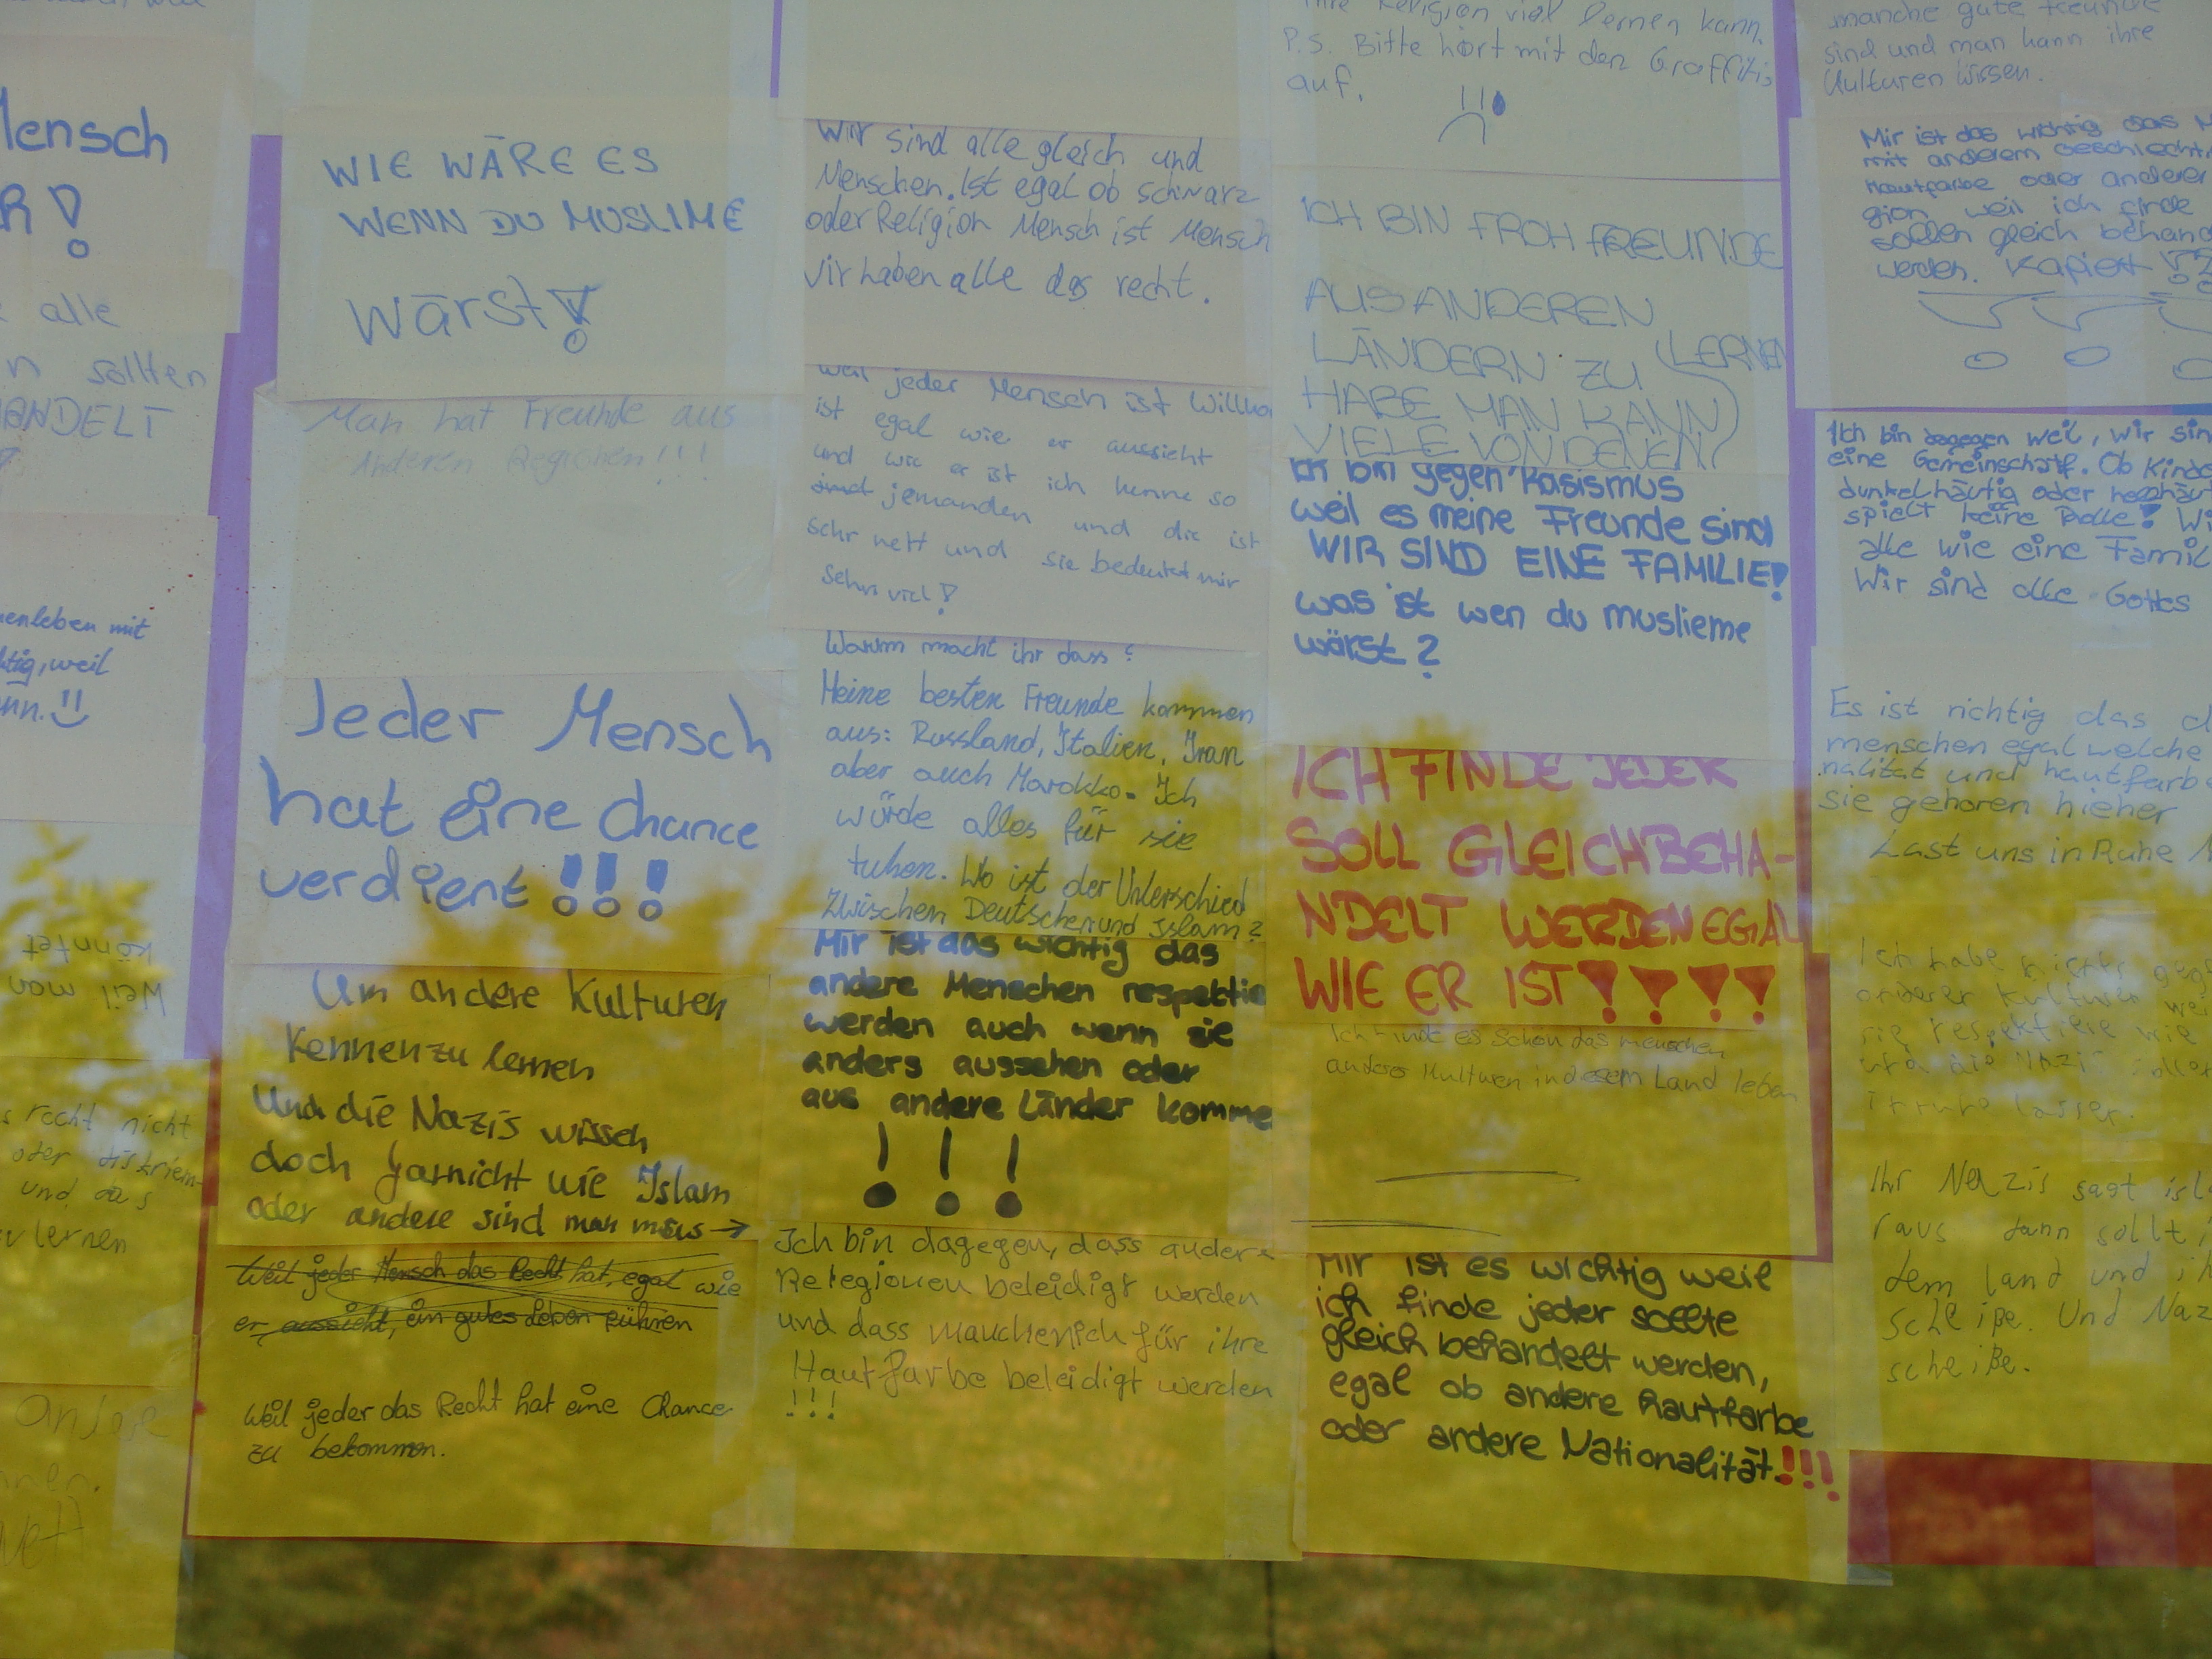 Mensch
R!
alle
n sollten
ANDELT
enleben mit
htig, weil
nn. !!
könntet
Weil man
s recht nicht
oder diskriem-
und das
lernen
WIE WÄRE ES
WENN DU MUSLIME
Wärst!
Man hat Freunde aus
Anderen Regionen!!!
Jeder Mensch
hat eine Chance
verdient!!!
Um andere Kulturen
Kennenzu lernen
Und die Nazis wissen
doch garnicht wie Islam
oder andere sind man mus →
Weil jeder Mensch das Recht hat, egal wie
er aussieht, ein gutes Leben führen
Weil jeder das Recht hat eine Chance
zu bekommen.
Wir sind alle gleich und
Menschen. Ist egal ob schwarz
oder Religion Mensch ist Mensch
Wir haben alle das recht.
weil jeder Mensch ist Willko
ist egal wie er aussieht
und wie er ist ich kenne so
jemanden und die ist
sehr nett und sie bedeutet mir
sehr viel!
Warum macht ihr dass?
Meine besten Freunde kommen
aus: Russland, Italien, Iran
aber auch Marokko. Ich
würde alles für sie
tuhen. Wo ist der Unterschied
Zwischen Deutschen und Islam?
Mir ist das wichtig das
andere Menschen respektie
werden auch wenn sie
anders aussehen oder
aus andere Länder komme
!!!
Ich bin dagegen, dass andere
Relegionen beleidigt werden
und dass für ihre
Hautfarbe beleidigt werden
!!!
ihre Religion viel lernen kann.
P.S. Bitte hört mit den Graffitis
auf.
ICH BIN FROH FREUNDE
AUS ANDEREN
LÄNDERN ZU (LERNEN
HABE MAN KANN
VIELE VON DENEN)
Ich bin gegen Rasismus
weil es meine Freunde sind
WIR SIND EINE FAMILIE!
was ist wen du muslieme
wärst?
ICH FINDE JEDER
SOLL GLEICHBEHA-
NDELT WERDEN EGAL
WIE ER IST!!!!
Ich finde es schön das menschen
anderer Kulturen in Land leben
Mir ist es wichtig weil
ich finde jeder sollte
gleich behandelt werden,
egal ob andere Hautfarbe
oder andere Nationalität!!!
manche gute Freunde
sind und man kann ihre
Kulturen wissen.
Mir ist das wichtig das M
mit anderem Geschlecht
Hautfarbe oder anderer
gion weil ich finde
sollen gleich behand
werden. Kapiert
Ich bin dagegen weil, wir sin
eine Gemeinschaft. Ob Kinde
dunkelhäutig oder
spielt keine Rolle! Wi
alle wie eine Famil
Wir sind alle Gottes
Es ist richtig das d
menschen egal welche
nalität und hautfarb
sie gehoren hieher
Last uns in Ruhe
Ich habe nichts geg
anderer Kulturen wei
sie respektiere wie
und die Nazis sollen
in ruhe lassen.
Ihr Nazis sagt isl
raus dann sollt i
dem land und ih
scheiße. Und Naz
scheiße.